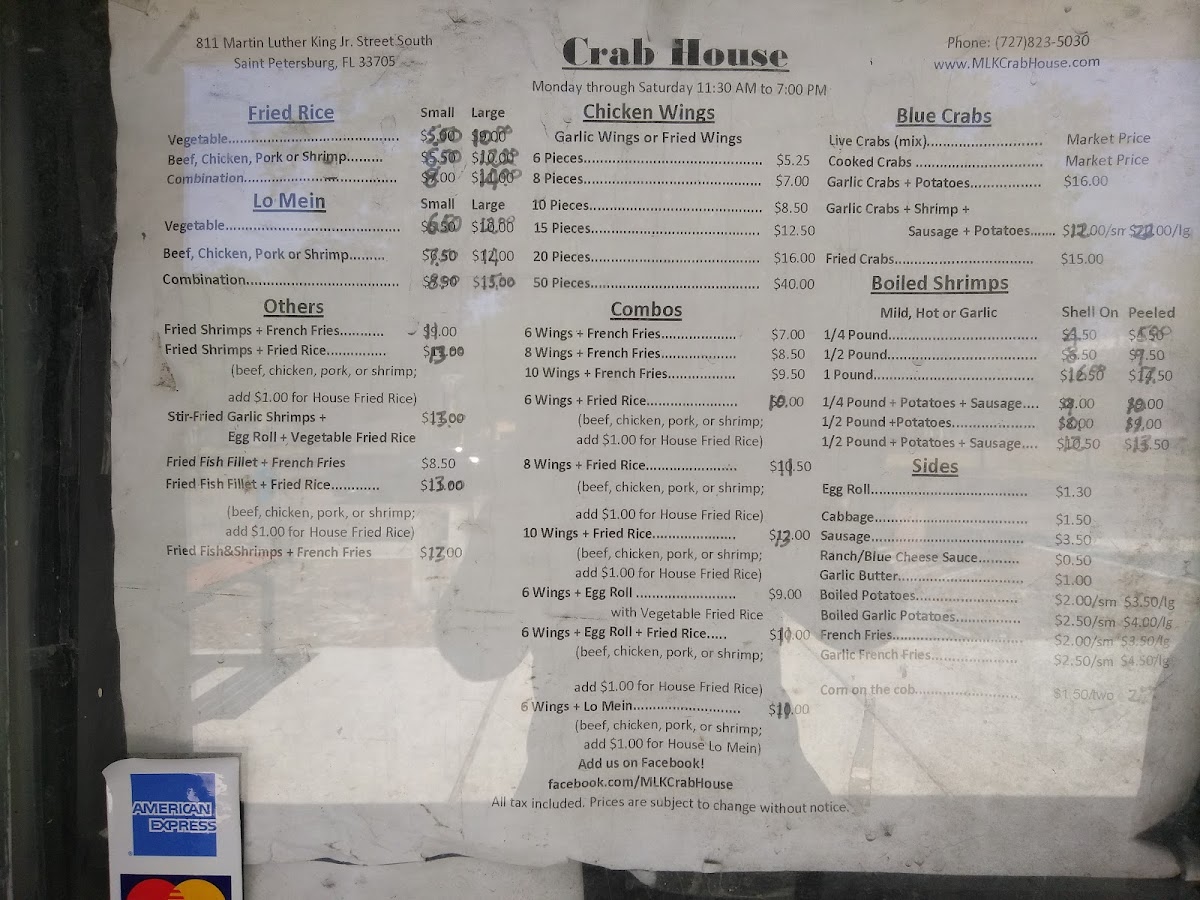 811 Martin Luther King Jr. Street South
Saint Petersburg, FL 33705
Crab House
Monday through Saturday 11:30 AM to 7:00 PM
Phone: (727)823-5030
www.MLKCrabHouse.com
Fried Rice Small Large
Vegetable
Beef, Chicken, Pork or Shrimp
Combination
Lo Mein Small Large
Vegetable
Beef, Chicken, Pork or Shrimp
Combination
Others
Fried Shrimps + French Fries
Fried Shrimps + Fried Rice
(beef, chicken, pork, or shrimp;
add $1.00 for House Fried Rice)
Stir-Fried Garlic Shrimps + $13.00
Egg Roll + Vegetable Fried Rice
Fried Fish Fillet + French Fries $8.50
Fried Fish Fillet + Fried Rice............ $13.00
(beef, chicken, pork, or shrimp;
add $1.00 for House Fried Rice)
Fried Fish&Shrimps + French Fries $12.00
Chicken Wings
Garlic Wings or Fried Wings
6 Pieces.......................................... $5.25
8 Pieces.......................................... $7.00
10 Pieces........................................ $8.50
15 Pieces........................................ $12.50
20 Pieces........................................ $16.00
50 Pieces........................................ $40.00
Combos
6 Wings + French Fries.................. $7.00
8 Wings + French Fries.................. $8.50
10 Wings + French Fries................ $9.50
6 Wings + Fried Rice
(beef, chicken, pork, or shrimp;
add $1.00 for House Fried Rice)
8 Wings + Fried Rice
(beef, chicken, pork, or shrimp;
add $1.00 for House Fried Rice)
10 Wings + Fried Rice
(beef, chicken, pork, or shrimp;
add $1.00 for House Fried Rice)
6 Wings + Egg Roll ........................ $9.00
with Vegetable Fried Rice
6 Wings + Egg Roll + Fried Rice.....
(beef, chicken, pork, or shrimp;
add $1.00 for House Fried Rice)
6 Wings + Lo Mein
(beef, chicken, pork, or shrimp;
add $1.00 for House Lo Mein)
Add us on Facebook!
facebook.com/MLKCrabHouse
All tax included. Prices are subject to change without notice.
Blue Crabs
Live Crabs (mix)........................... Market Price
Cooked Crabs .............................. Market Price
Garlic Crabs + Potatoes................. $16.00
Garlic Crabs + Shrimp +
Sausage + Potatoes.......
Fried Crabs................................. $15.00
Boiled Shrimps
Mild, Hot or Garlic Shell On Peeled
1/4 Pound
1/2 Pound
1 Pound
1/4 Pound + Potatoes + Sausage....
1/2 Pound +Potatoes
1/2 Pound + Potatoes + Sausage....
Sides
Egg Roll..................................... $1.30
Cabbage..................................... $1.50
Sausage..................................... $3.50
Ranch/Blue Cheese Sauce.......... $0.50
Garlic Butter.............................. $1.00
Boiled Potatoes......................... $2.00/sm $3.50/lg
Boiled Garlic Potatoes............... $2.50/sm $4.00/lg
French Fries............................... $2.00/sm $3.50/lg
Garlic French Fries.................... $2.50/sm $4.50/lg
Corn on the cob......................... $1.50/two
AMERICAN
EXPRESS